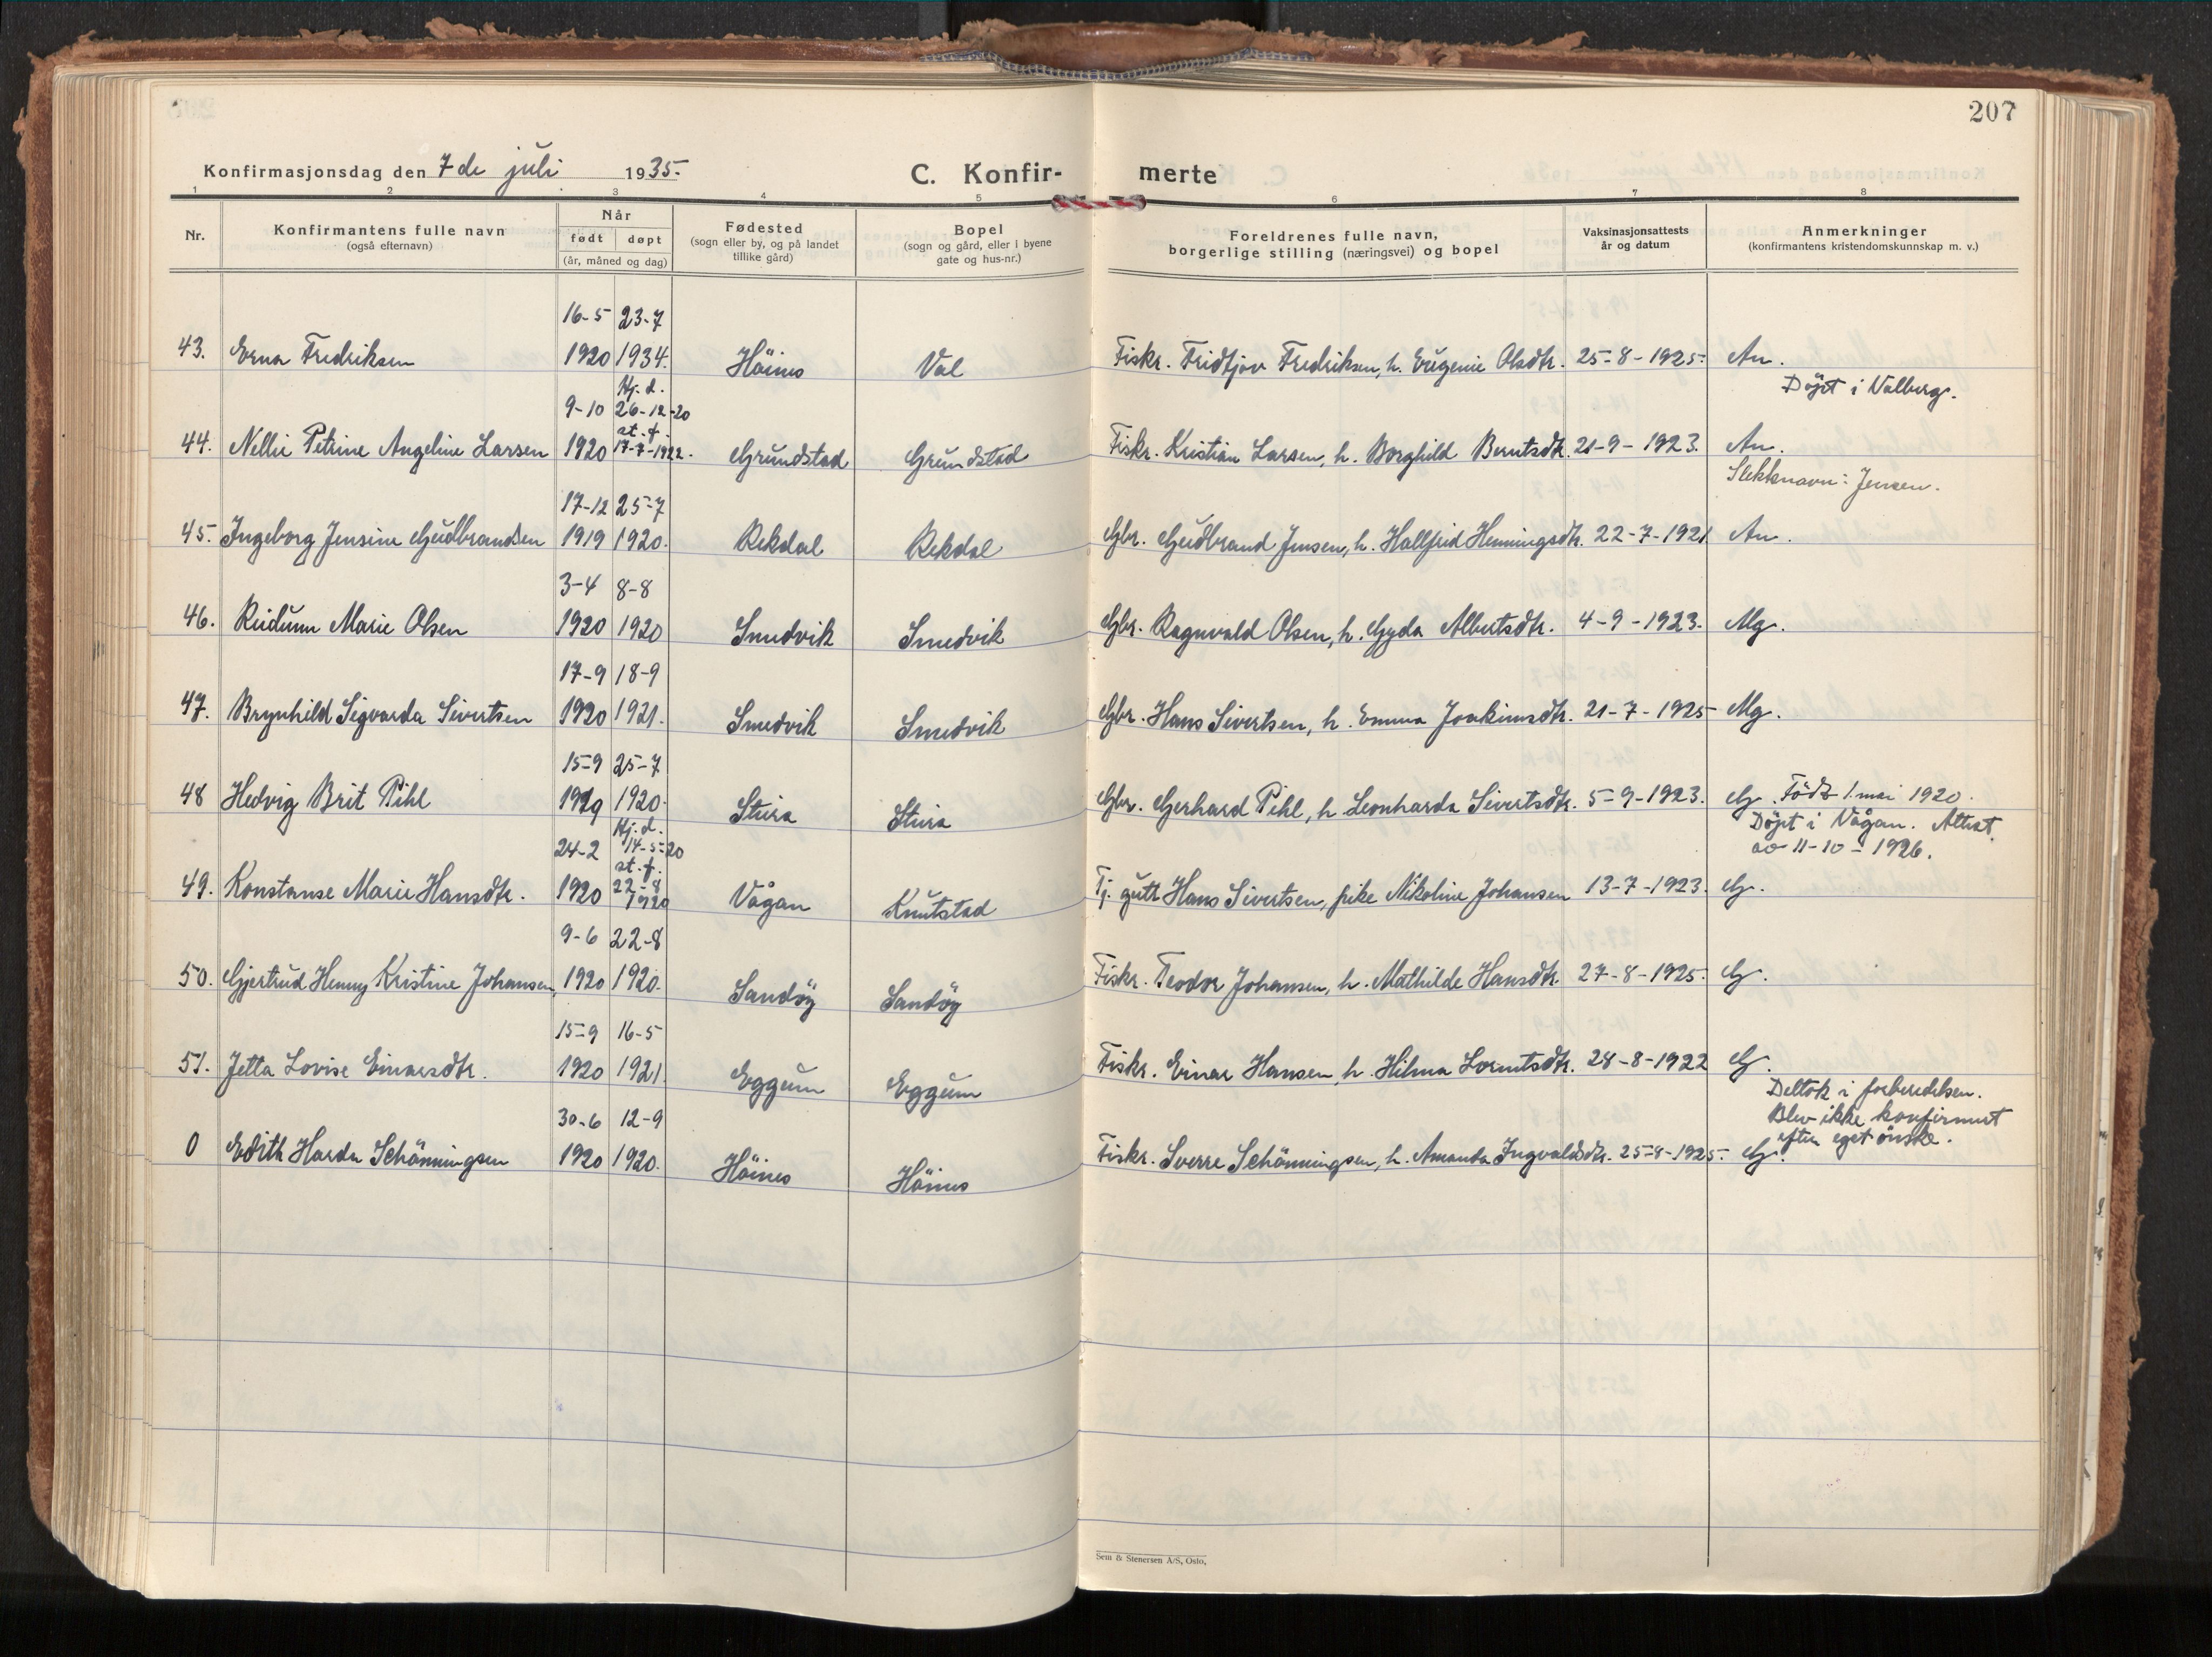 207
Konfirmasjonsdag den 7 de juli 1935.
C. Konfir- merte
1 2 3 4 5 6 7 8
Nr.
Konfirmantens fulle navn
(også efternavn)
Når
født døpt
(år, måned og dag)
Fødested
(sogn eller by, og på landet
tillike gård)
Bopel
(sogn og gård, eller i byene
gate og hus-nr.)
Foreldrenes fulle navn,
borgerlige stilling (næringsvei) og bopel
Vaksinasjonsattests
år og datum
Anmerkninger
(konfirmantens kristendomskunnskap m. v.)
16-5 23-7
43. Erna Fredriksen 1920 1934. Höines Val Fiskr. Fridtjov Fredriksen, h. Eugenie Olsdtr. 25-8-1925. An.
Döpt i Valberg.
Hj. d.
9-10 26-12-20
st. f.
44. Nellie Petrine Angeline Larsen 1920 17-7-1922. Grundstad Grundstad Fiskr. Kristian Larsen, h. Borghild Berntsdtr. 21-9-1923. An.
Slektsnavn: Jensen.
17-12 25-7
45. Ingeborg Jensine Gudbrandsen 1919 1920. Rekdal Rekdal Gbr. Gudbrand Jensen, h. Hallfrid Henningsdtr. 22-7-1921 An.
3-4 8-8
46. Reidunn Marie Olsen 1920 1920 Smedvik Smedvik Gbr. Ragnvald Olsen, h. Gyda Albertsdtr. 4-9-1923. Mg.
17-9 18-9
47. Brynhild Sigvarda Sivertsen 1920 1921. Smedvik Smedvik Gbr. Hans Sivertsen, h. Emma Joakimsdtr. 21-7-1925 Mg.
15-9 25-7
48 Hedvig Brit Pihl 1919 1920. Stura Stura Gbr. Gerhard Pihl, h. Leonharda Sivertsdtr. 5-9-1923. G. Född 1. mai 1920.
Döpt i Vågan. Attest
av 11-10-1926.
Hj. d.
24-2 14-5-20
st. f.
22-8
49. Konstanse Marie Hansdtr. 1920 1920 Vågan Knutstad Tj. gutt Hans Sivertsen, pike Nikoline Johansen 13-7-1923. G.
9-6 22-8
50. Gjertrud Henny Kristine Johansen, 1920 1920. Sandöy Sandöy Fiskr. Teodor Johansen, h. Mathilde Hansdtr. 27-8-1925. G.
15-9 16-5
51. Jetta Lovise Einarsdtr. 1920 1921. Eggum Eggum Fiskr. Einar Hansen, h. Hilma Lorentsdtr. 28-8-1922 G.
30-6 12-9
Deltok i forberedelsen.
Blev ikke konfirmert
efter eget önske.
0 Edith Harda Schönningsen 1920 1920. Höines Höines Fiskr. Sverre Schönningsen, h. Amanda Ingvaldsdtr. 25-8-1925. G.
Sem & Stenersen A/S, Oslo.